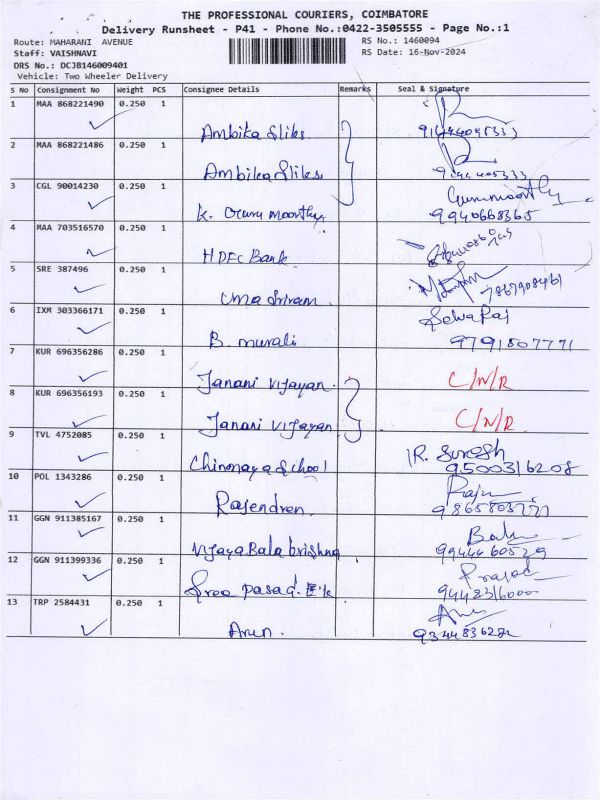 THE PROFESSIONAL COURIERS, COIMBATORE
Delivery Runsheet - P41 - Phone No.:0422-3505555 - Page No.:1
Route: MAHARANI AVENUE
RS No.: 1460094
Staff: VAISHNAVI
RS Date: 16-Nov-2024
DRS No.: DCJB146009401
Vehicle: Two Wheeler Delivery
S No Consignment No Weight PCS Consignee Details Remarks Seal & Signature
1 MAA 868221490 0.250 1
Ambika Sliks
2 MAA 868221486 0.250 1
Ambika Sliks
3 CGL 90014230 0.250 1 Gurumoorthy
K. Guru moorthy 9940668365
4 MAA 703516570 0.250 1
HDFC Bank
5 SRE 387496 0.250 1
Uma Sriram
6 IXM 303366171 0.250 1 Selva Raj
B. murali 9791807771
7 KUR 696356286 0.250 1
Janani Vijayan C/N/R
8 KUR 696356193 0.250 1
Janani Vijayan C/N/R
9 TVL 4752085 0.250 1 R. Suresh
Chinmaya School 9500316208
10 POL 1343286 0.250 1 Raju
Rajendren
11 GGN 911385167 0.250 1
Vijaya Bala krishna 9944460529
12 GGN 911399336 0.250 1 Prasad
Sree Pasad. 9448316000
13 TRP 2584431 0.250 1
Arun.